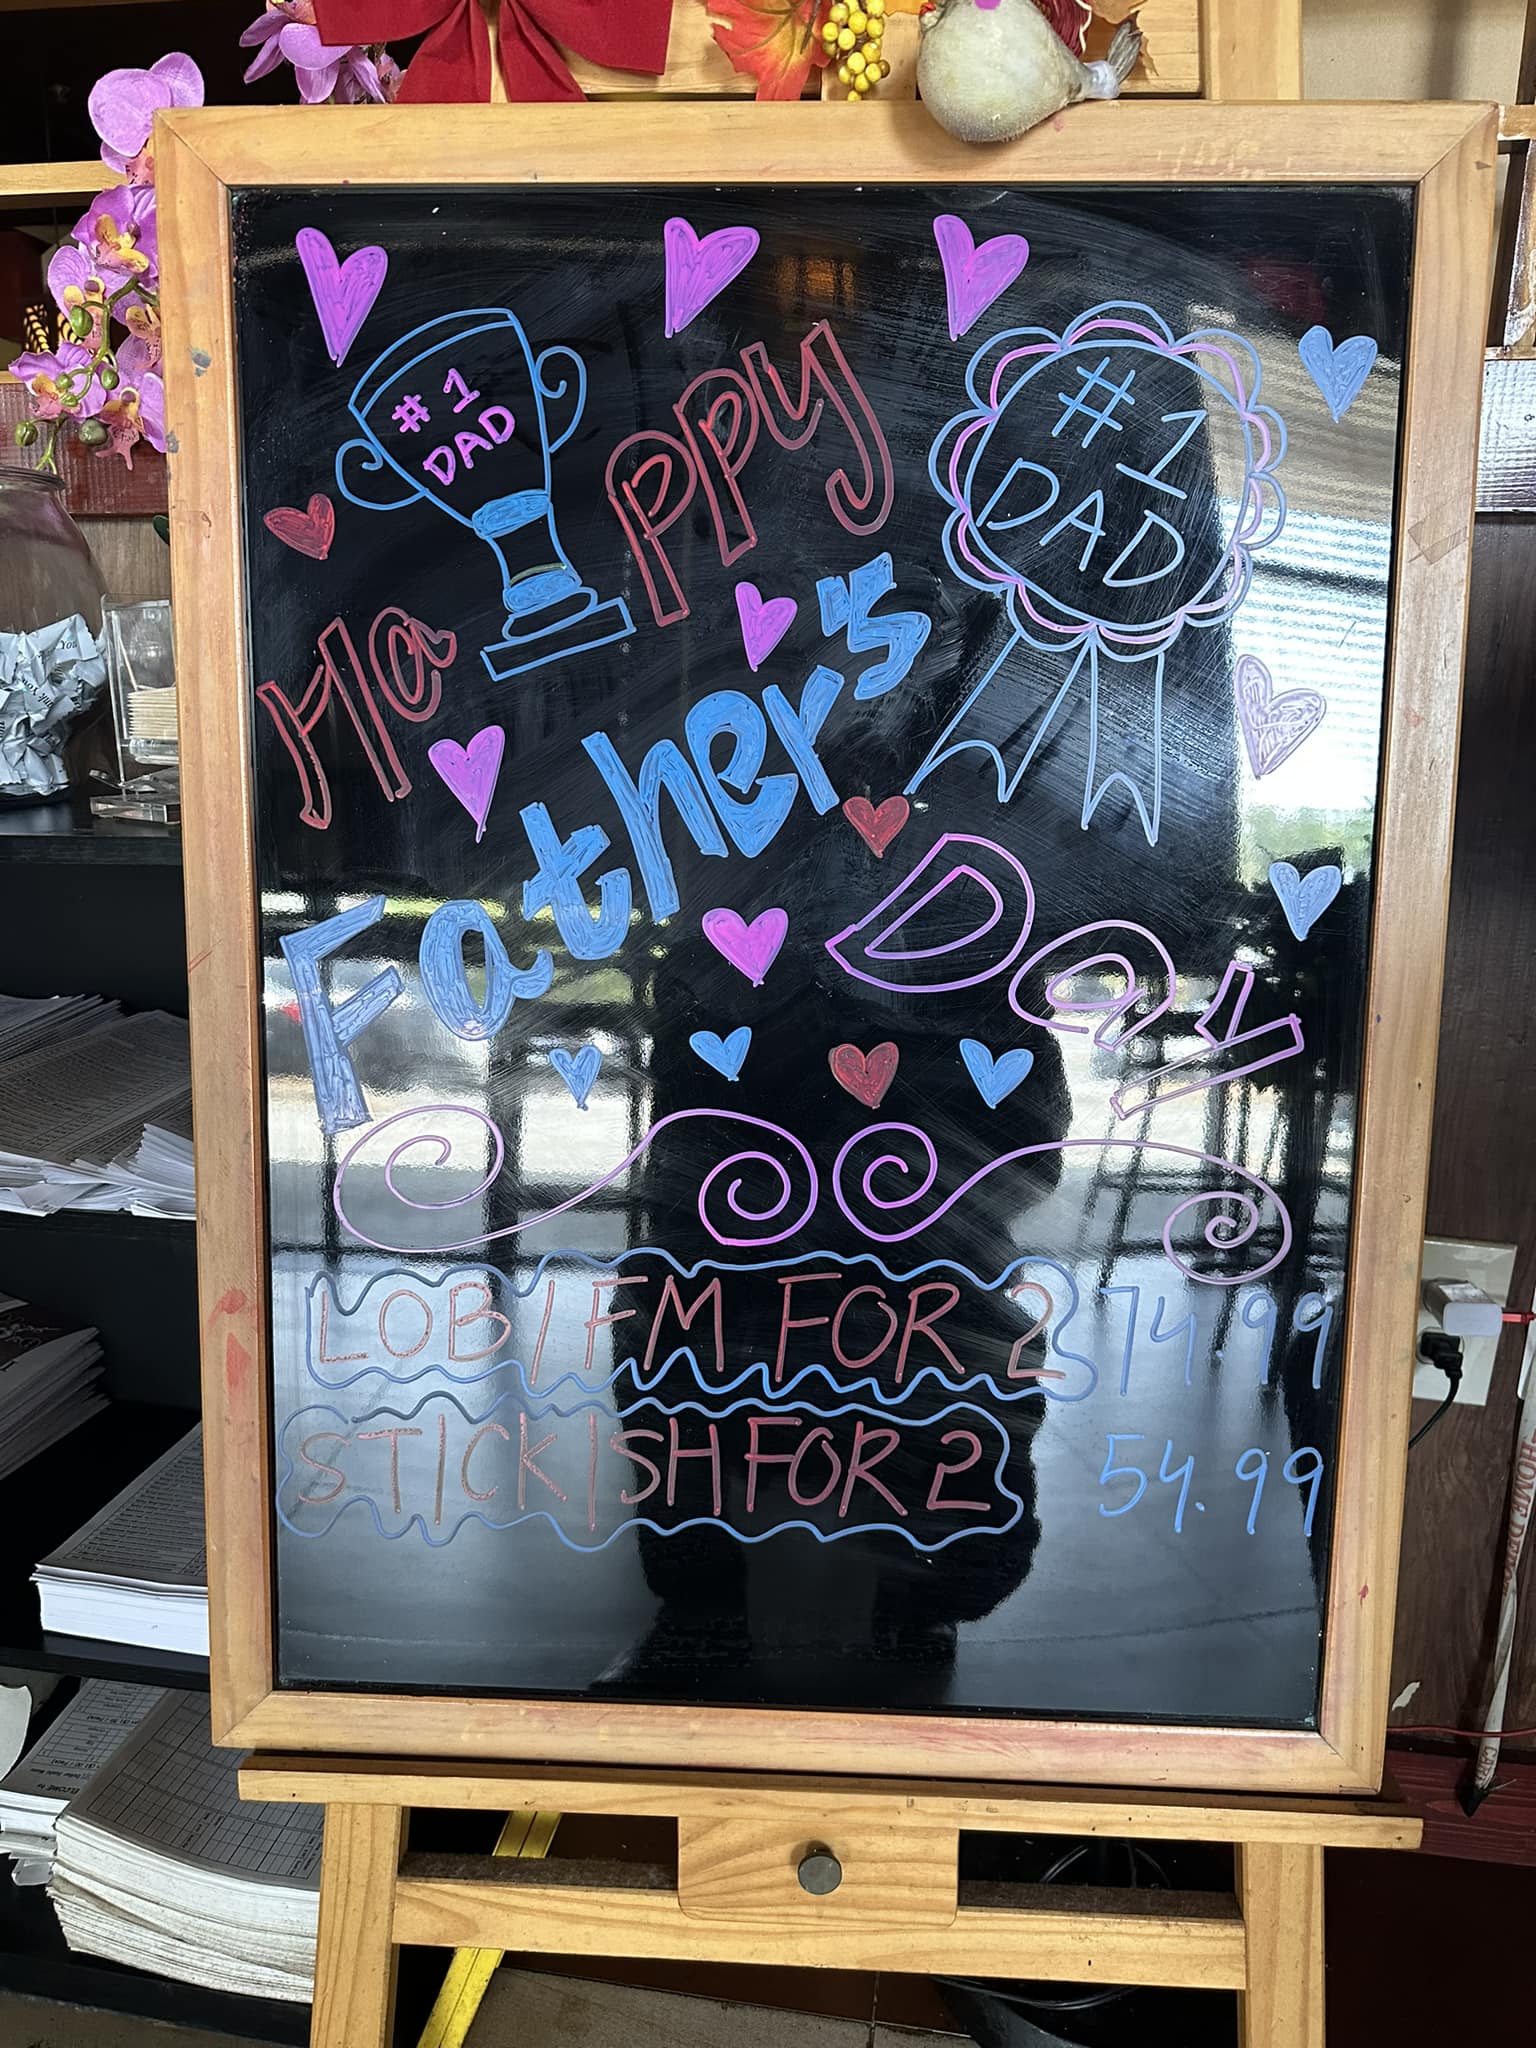 # 1
DAD
Happy
# 1
DAD
Father's
Day
LOB/FM FOR 2 74.99
STICK/SH FOR 2 54.99